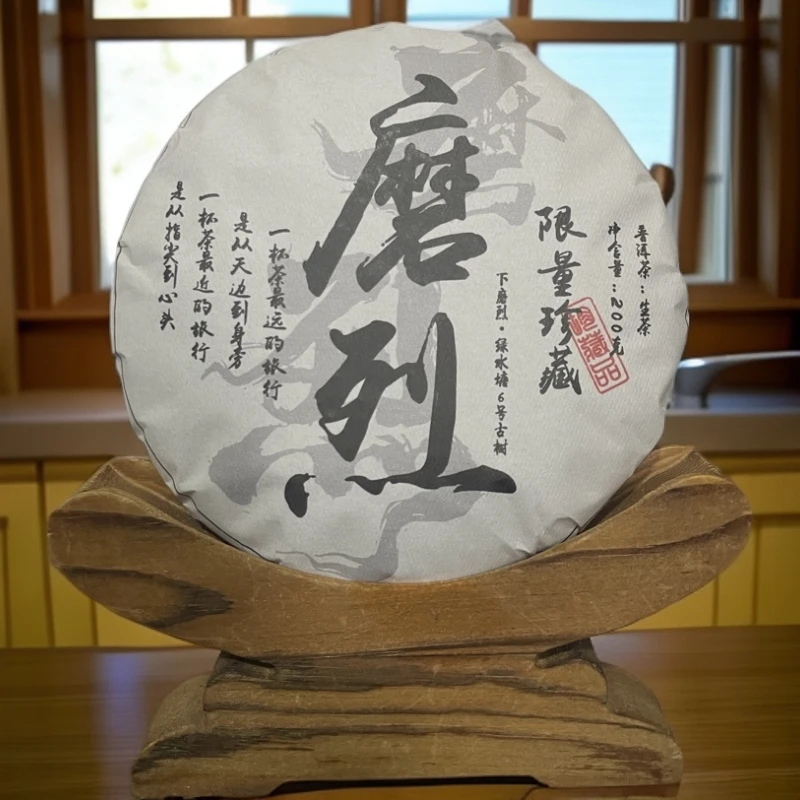 普洱茶：生茶
净含量：200克
限量珍藏
珍藏品
下磨烈·绿水塘6号古树
磨烈
一杯茶最远的旅行
是从天边到身旁
一杯茶最近的旅行
是从指尖到心头